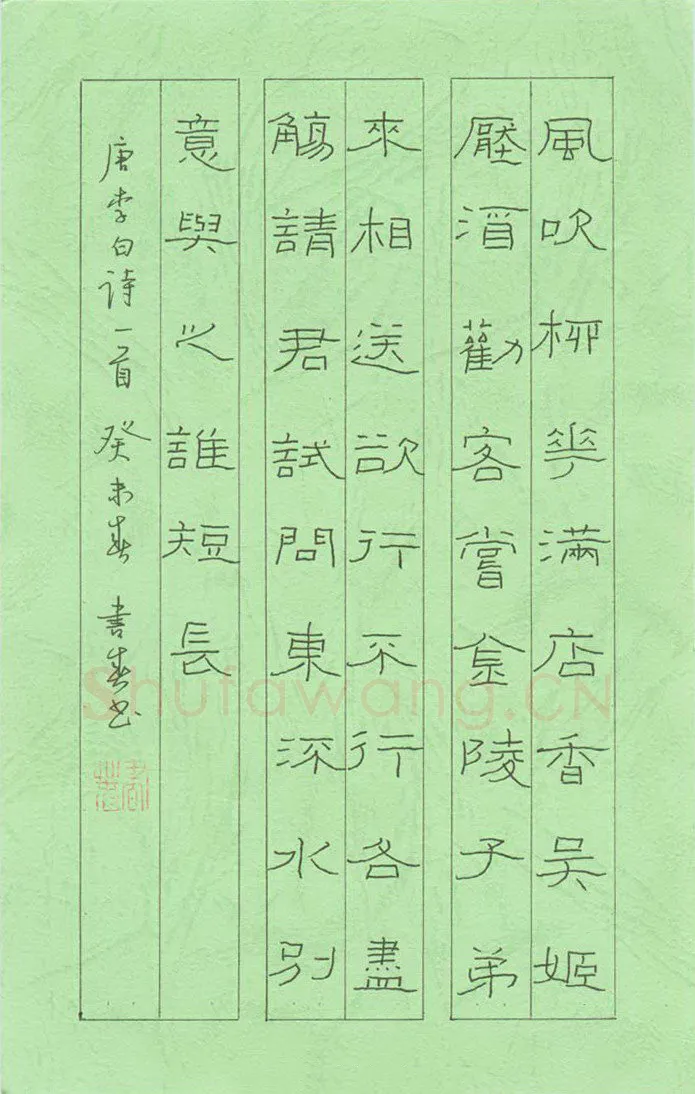 風吹柳花滿店香吳姬
壓酒勸客嘗金陵子弟
來相送欲行不行各盡
觴請君試問東深水別
意與之誰短長
唐李白诗一首 癸未春 書春书
Shufawang.CN